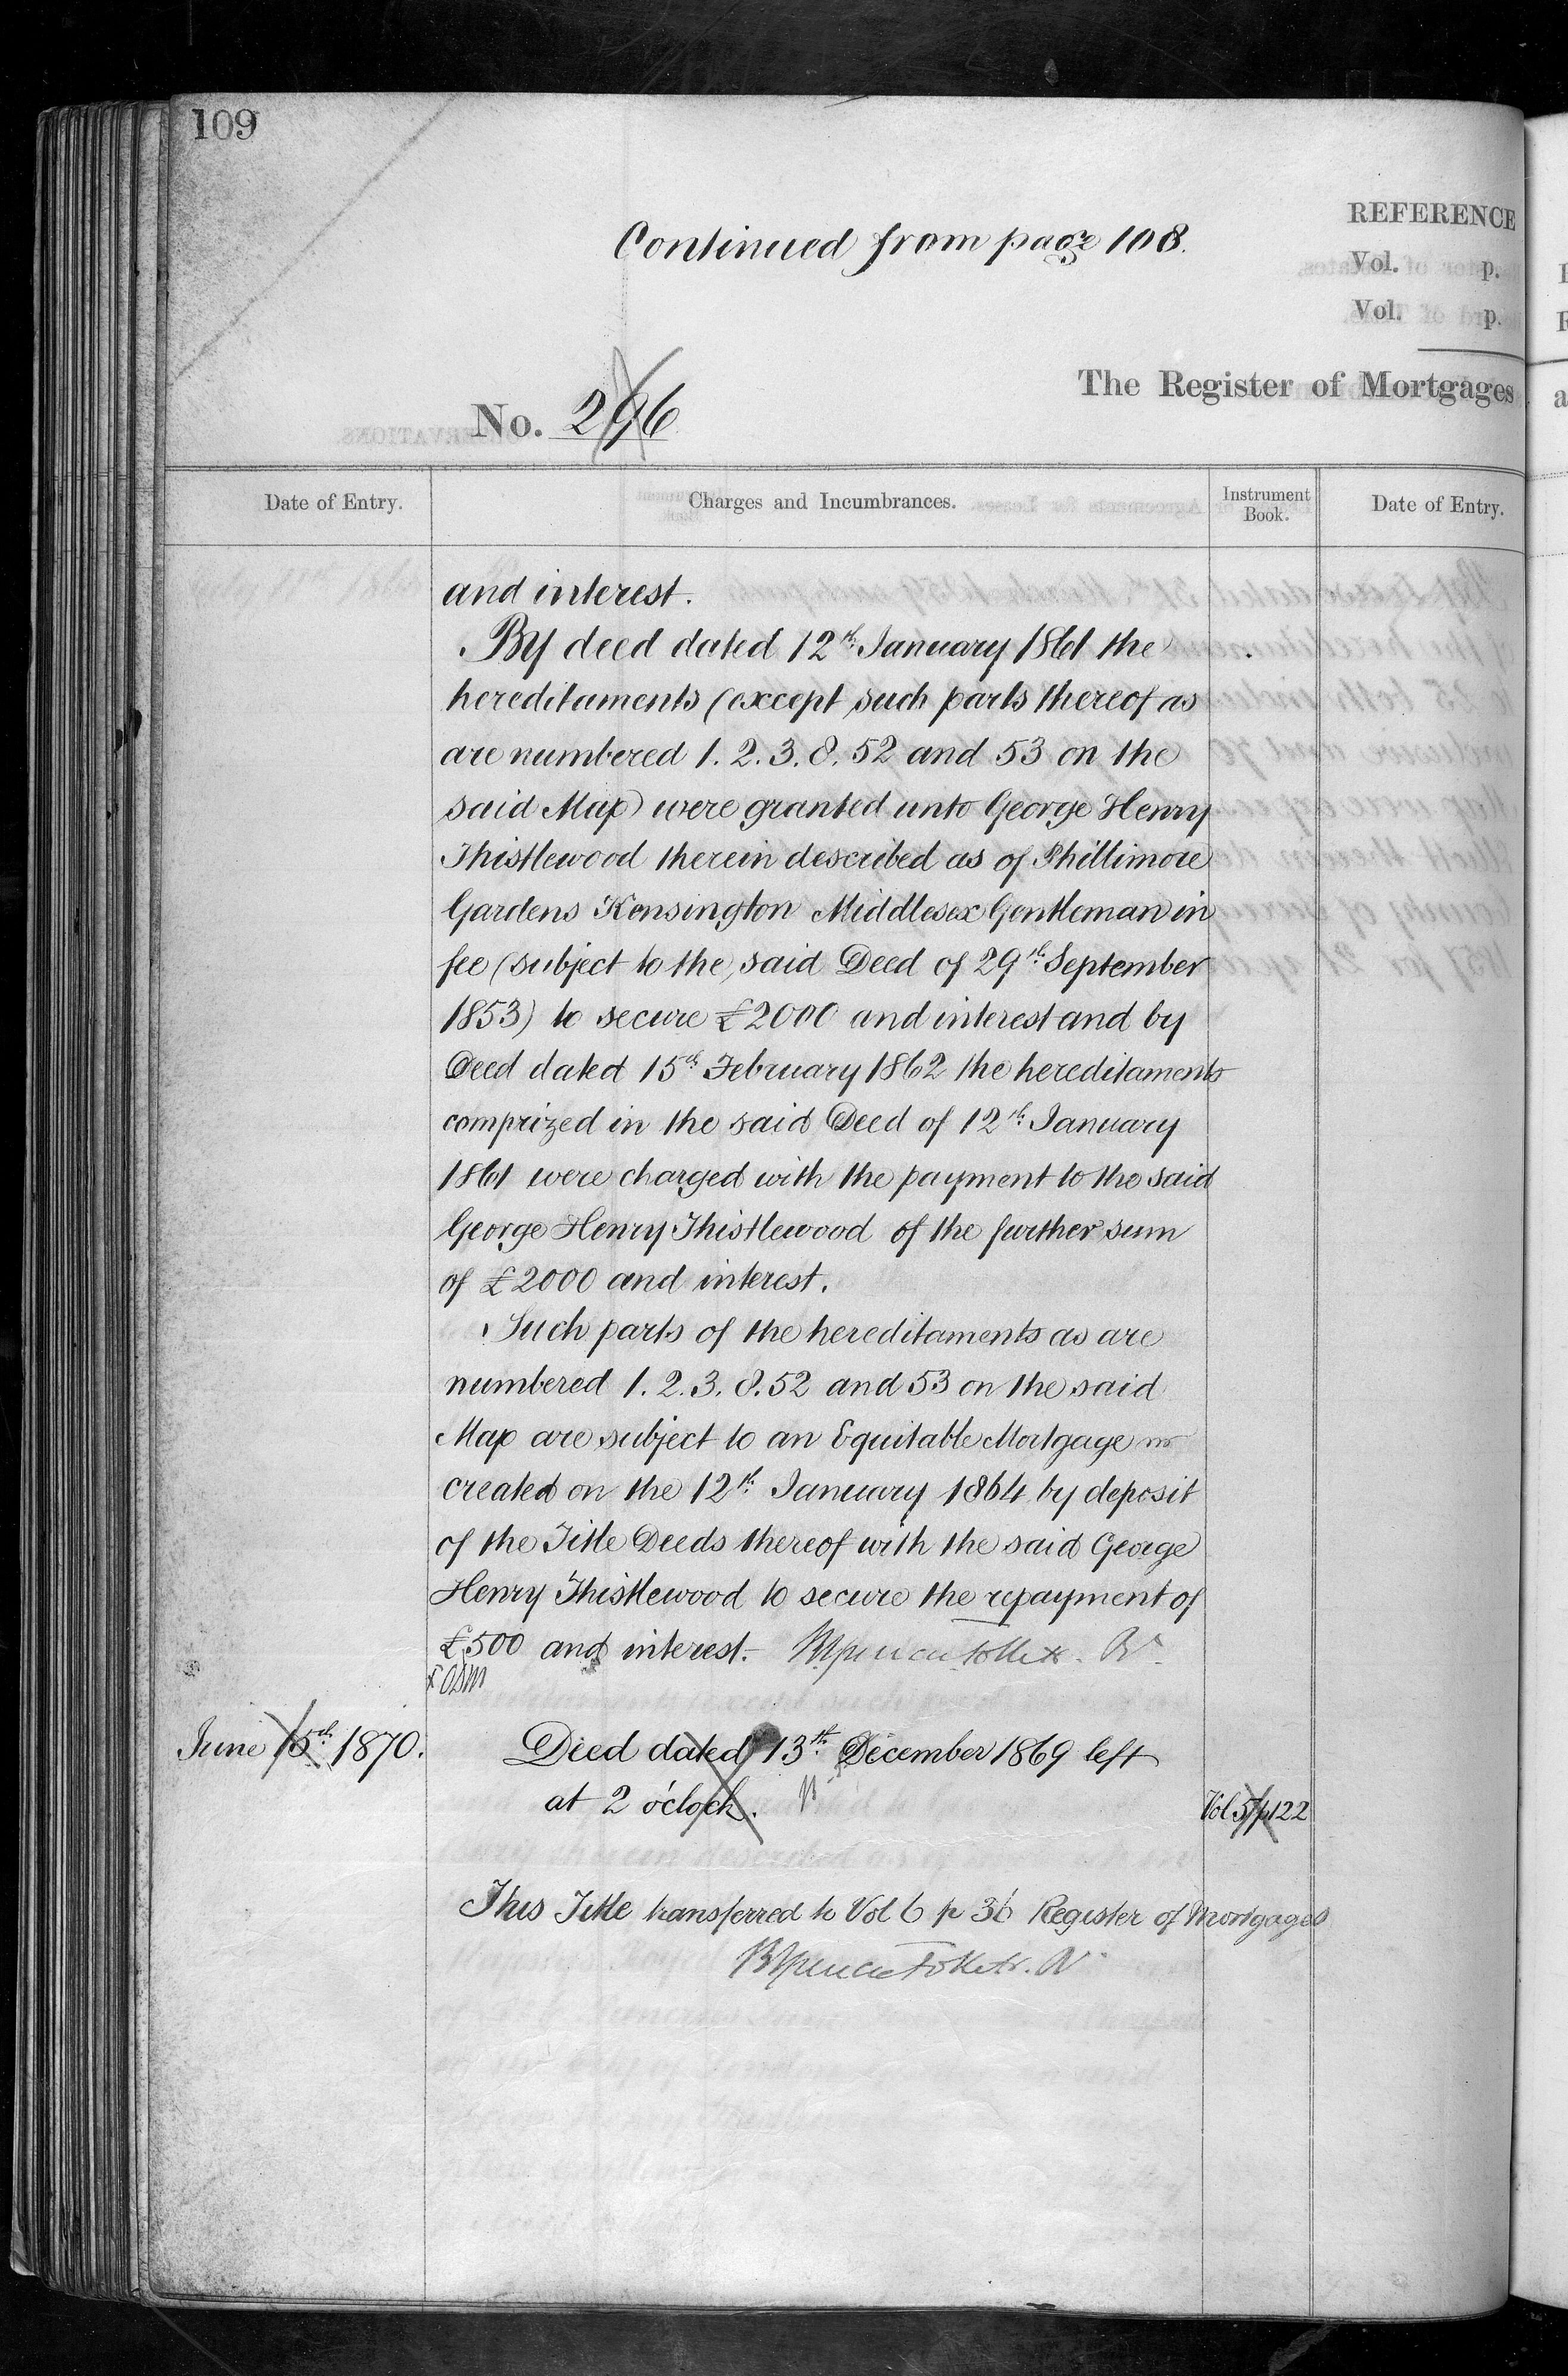 109
Continued from page 108.
REFERENCE
Vol. p.
Vol. p.
The Register of Mortgages
No. 296
Date of Entry.
Charges and Incumbrances.
Instrument Book.
Date of Entry.
and interest.
By deed dated 12th January 1861 the
hereditaments (except such parts thereof as
are numbered 1. 2. 3. 8. 52 and 53 on the
said Map) were granted unto George Henry
Thistlewood therein described as of Phillimore
Gardens Kensington Middlesex Gentleman in
fee (subject to the said Deed of 29th September
1853) to secure £2000 and interest and by
Deed dated 15th February 1862 the hereditaments
comprized in the said Deed of 12th January
1861 were charged with the payment to the said
George Henry Thistlewood of the further sum
of £2000 and interest.
Such parts of the hereditaments as are
numbered 1. 2. 3. 8. 52 and 53 on the said
Map are subject to an Equitable Mortgage
created on the 12th January 1864 by deposit
of the Title Deeds thereof with the said George
Henry Thistlewood to secure the repayment of
£500 and interest.
June 15th 1870.
Deed dated 13th December 1869 left
at 2 o'clock.
Vol 5 p 122
This Title transferred to Vol 6 p 36 Register of Mortgages